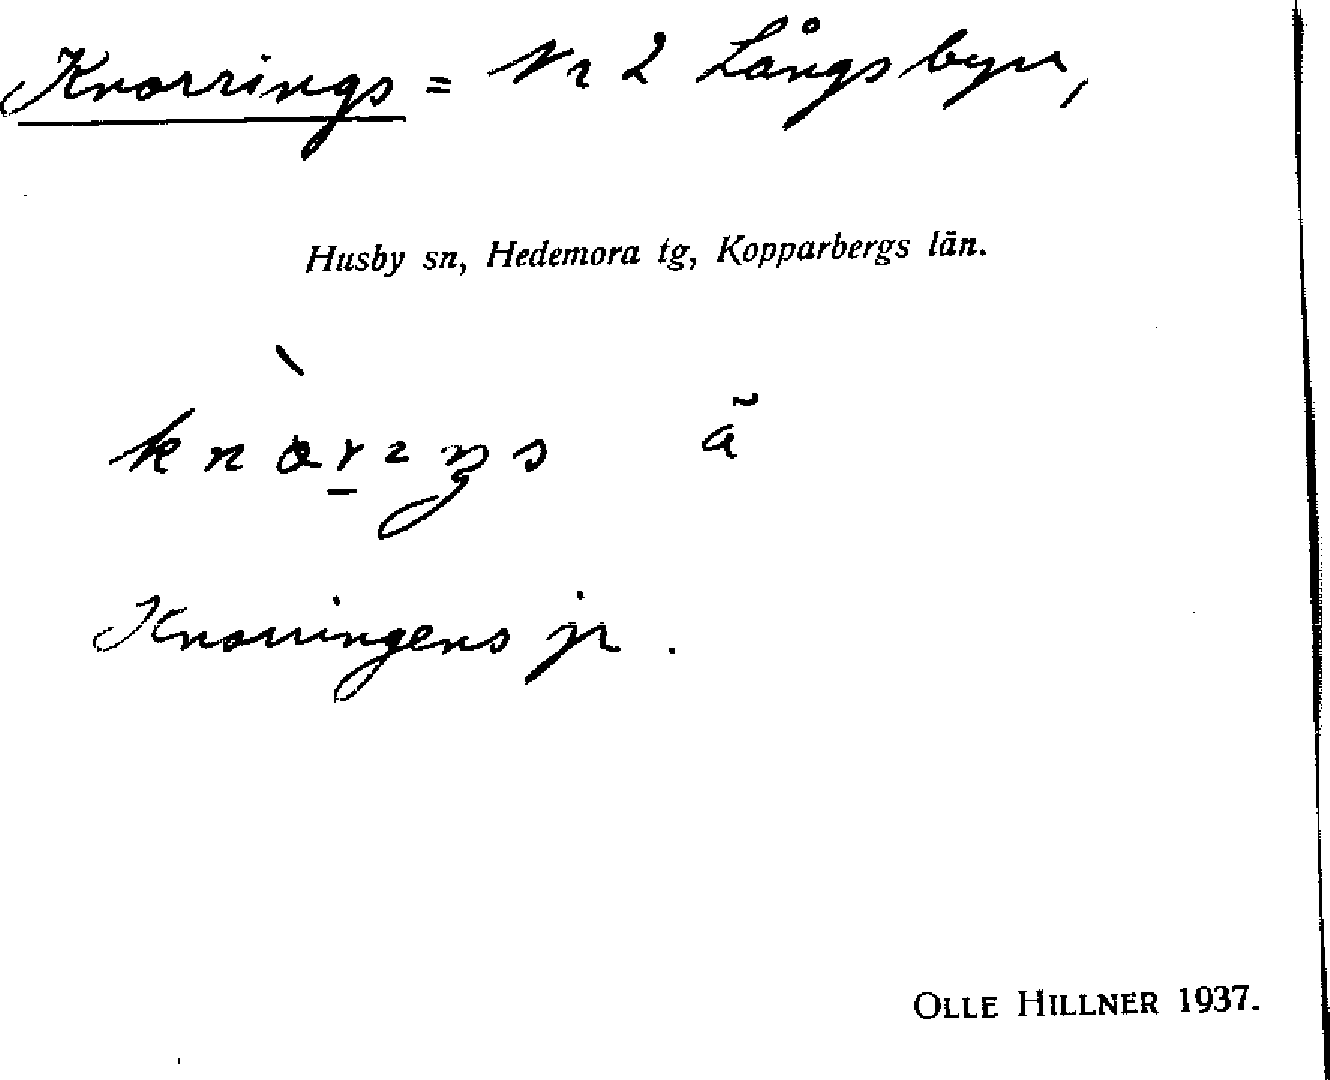 Knorrings = Nr 2 Långsbyn,
Husby sn, Hedemora tg, Kopparbergs län.
Knorringens jr.
OLLE HILLNER 1937.